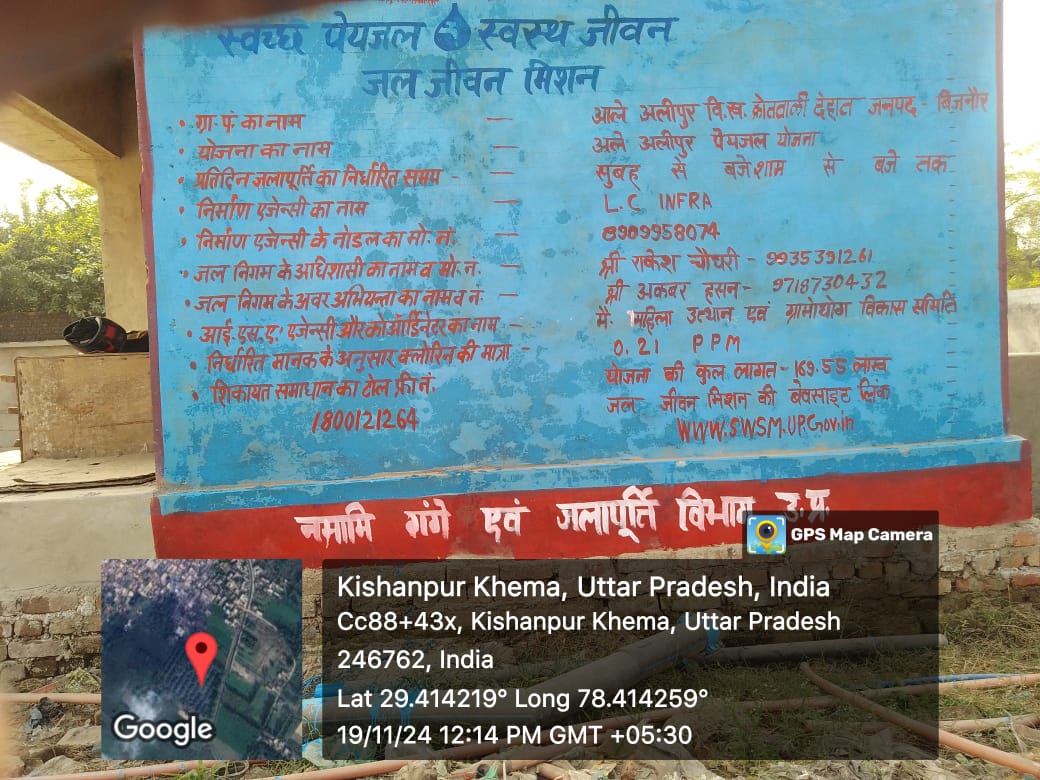 स्वच्छ पेयजल स्वस्थ जीवन
जल जीवन मिशन
• ग्रा. पं. का नाम — आले अलीपुर वि.ख. कोतवाली देहात जनपद - बिजनौर
• योजना का नाम — अले अलीपुर पेयजल योजना
• प्रतिदिन जलापूर्ति का निर्धारित समय - — सुबह से बजे शाम से बजे तक
• निर्माण एजेन्सी का नाम — L.C. INFRA
• निर्माण एजेन्सी के नोडल का मो. नं. — 8909958074
• जल निगम के अधिशासी का नाम व मो. नं. — श्री राकेश चौधरी - 9935391261
• जल निगम के अवर अभियन्ता का नाम व नं. — श्री अकबर हसन - 9718730432
• आई. एस. ए. एजेन्सी और कोऑर्डिनेटर का नाम - मै. महिला उत्थान एवं ग्रामोयोग विकास समिति
• निर्धारित मानक के अनुसार क्लोरिन की मात्रा - 0.21 PPM
• शिकायत समाधान का टोल फ्री नं. योजना की कुल लागत - 169.55 लाख
1800121264 जल जीवन मिशन की बेवसाइट लिंक
WWW.SWSM.UP.Gov.in
नमामि गंगे एवं जलापूर्ति विभाग उ.प्र.
GPS Map Camera
Kishanpur Khema, Uttar Pradesh, India
Cc88+43x, Kishanpur Khema, Uttar Pradesh
246762, India
Lat 29.414219° Long 78.414259°
19/11/24 12:14 PM GMT +05:30
Google